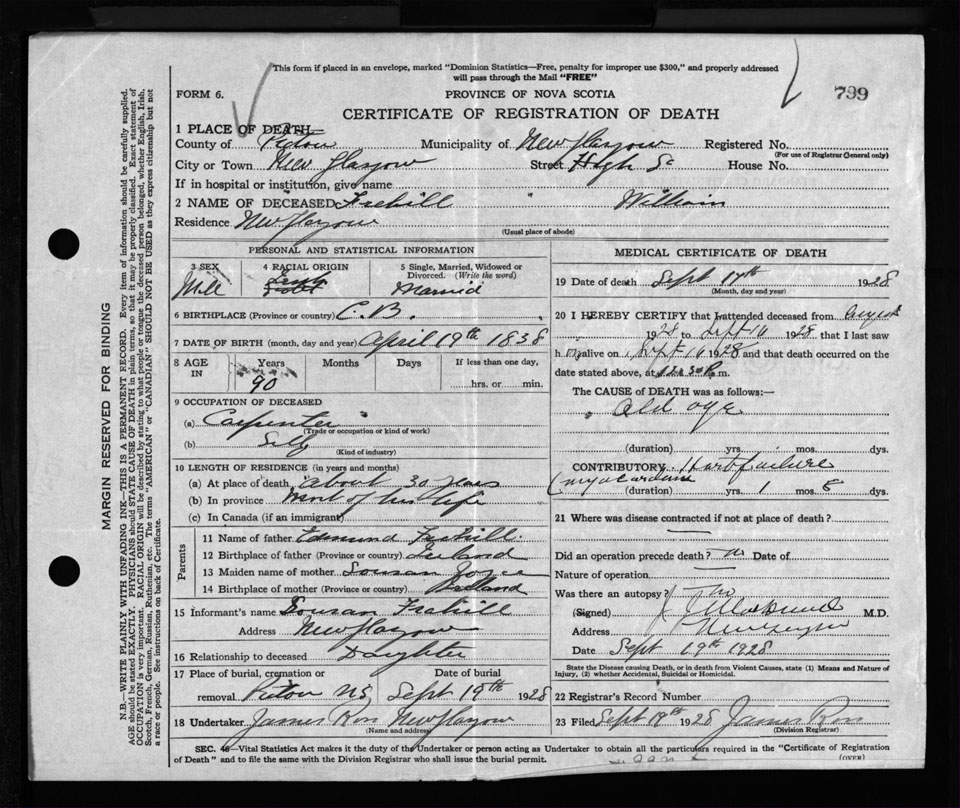 This form if placed in an envelope, marked "Dominion Statistics—Free, penalty for improper use $300," and properly addressed
will pass through the Mail "FREE"
FORM 6.
PROVINCE OF NOVA SCOTIA
799
CERTIFICATE OF REGISTRATION OF DEATH
1 PLACE OF DEATH—
County of Pictou Municipality of New Glasgow Registered No.
(For use of Registrar General only)
City or Town New Glasgow Street High St House No.
If in hospital or institution, give name
2 NAME OF DECEASED Frehill William
Residence New Glasgow
(Usual place of abode)
PERSONAL AND STATISTICAL INFORMATION
3 SEX 4 RACIAL ORIGIN 5 Single, Married, Widowed or Divorced. (Write the word)
Male Irish Married
6 BIRTHPLACE (Province or country) C.B.
7 DATE OF BIRTH (month, day and year) April 19th 1838
8 AGE IN Years Months Days If less than one day,
90 hrs. or min.
9 OCCUPATION OF DECEASED
(a) Carpenter
(Trade or occupation or kind of work)
(b) Self
(Kind of industry)
10 LENGTH OF RESIDENCE (in years and months)
(a) At place of death about 30 years
(b) In province most of his life
(c) In Canada (if an immigrant)
Parents
11 Name of father Edmund Frehill
12 Birthplace of father (Province or country) Ireland
13 Maiden name of mother Sousan Joyce
14 Birthplace of mother (Province or country) Ireland
15 Informant's name Sousan Frehill
Address New Glasgow
16 Relationship to deceased Daughter
17 Place of burial, cremation or Date of burial
removal. Pictou NS Sept 19th 1928
18 Undertaker James Ross New Glasgow
(Name and address)
MEDICAL CERTIFICATE OF DEATH
19 Date of death Sept 17th 1928
(Month, day and year)
20 I HEREBY CERTIFY that I attended deceased from August
1928 to Sept 16 1928 that I last saw
h m alive on Sept 16 1928 and that death occurred on the
date stated above, at m.
The CAUSE of DEATH was as follows:—
Old age
(duration) yrs. mos. dys.
CONTRIBUTORY Heart failure
(myocardial
(duration) yrs. 1 mos 8 dys.
21 Where was disease contracted if not at place of death?
Did an operation precede death? no Date of
Nature of operation
Was there an autopsy? no
(Signed) M.D.
Address New Glasgow
Date Sept 19th 1928
State the Disease causing Death, or in death from Violent Causes, state (1) Means and Nature of
Injury, (2) whether Accidental, Suicidal or Homicidal.
22 Registrar's Record Number
23 Filed Sept 19th 1928 James Ross
(Division Registrar)
SEC. 46—Vital Statistics Act makes it the duty of the Undertaker or person acting as Undertaker to obtain all the particulars required in the "Certificate of Registration
of Death" and to file the same with the Division Registrar who shall issue the burial permit.
(OVER)
MARGIN RESERVED FOR BINDING
N.B.—WRITE PLAINLY WITH UNFADING INK—THIS IS A PERMANENT RECORD. Every item of information should be carefully supplied.
AGE should be stated EXACTLY. PHYSICIANS should STATE CAUSE OF DEATH in plain terms, so that it may be properly classified. Exact statement of
OCCUPATION is very important. RACIAL ORIGIN will be described by stating to what people or tongue the deceased person belonged, whether English, Irish,
Scotch, French, German, Russian, Ruthenian, etc. The terms "AMERICAN" or "CANADIAN" SHOULD NOT BE USED as they express citizenship but not
a race or people. See instructions on back of Certificate.